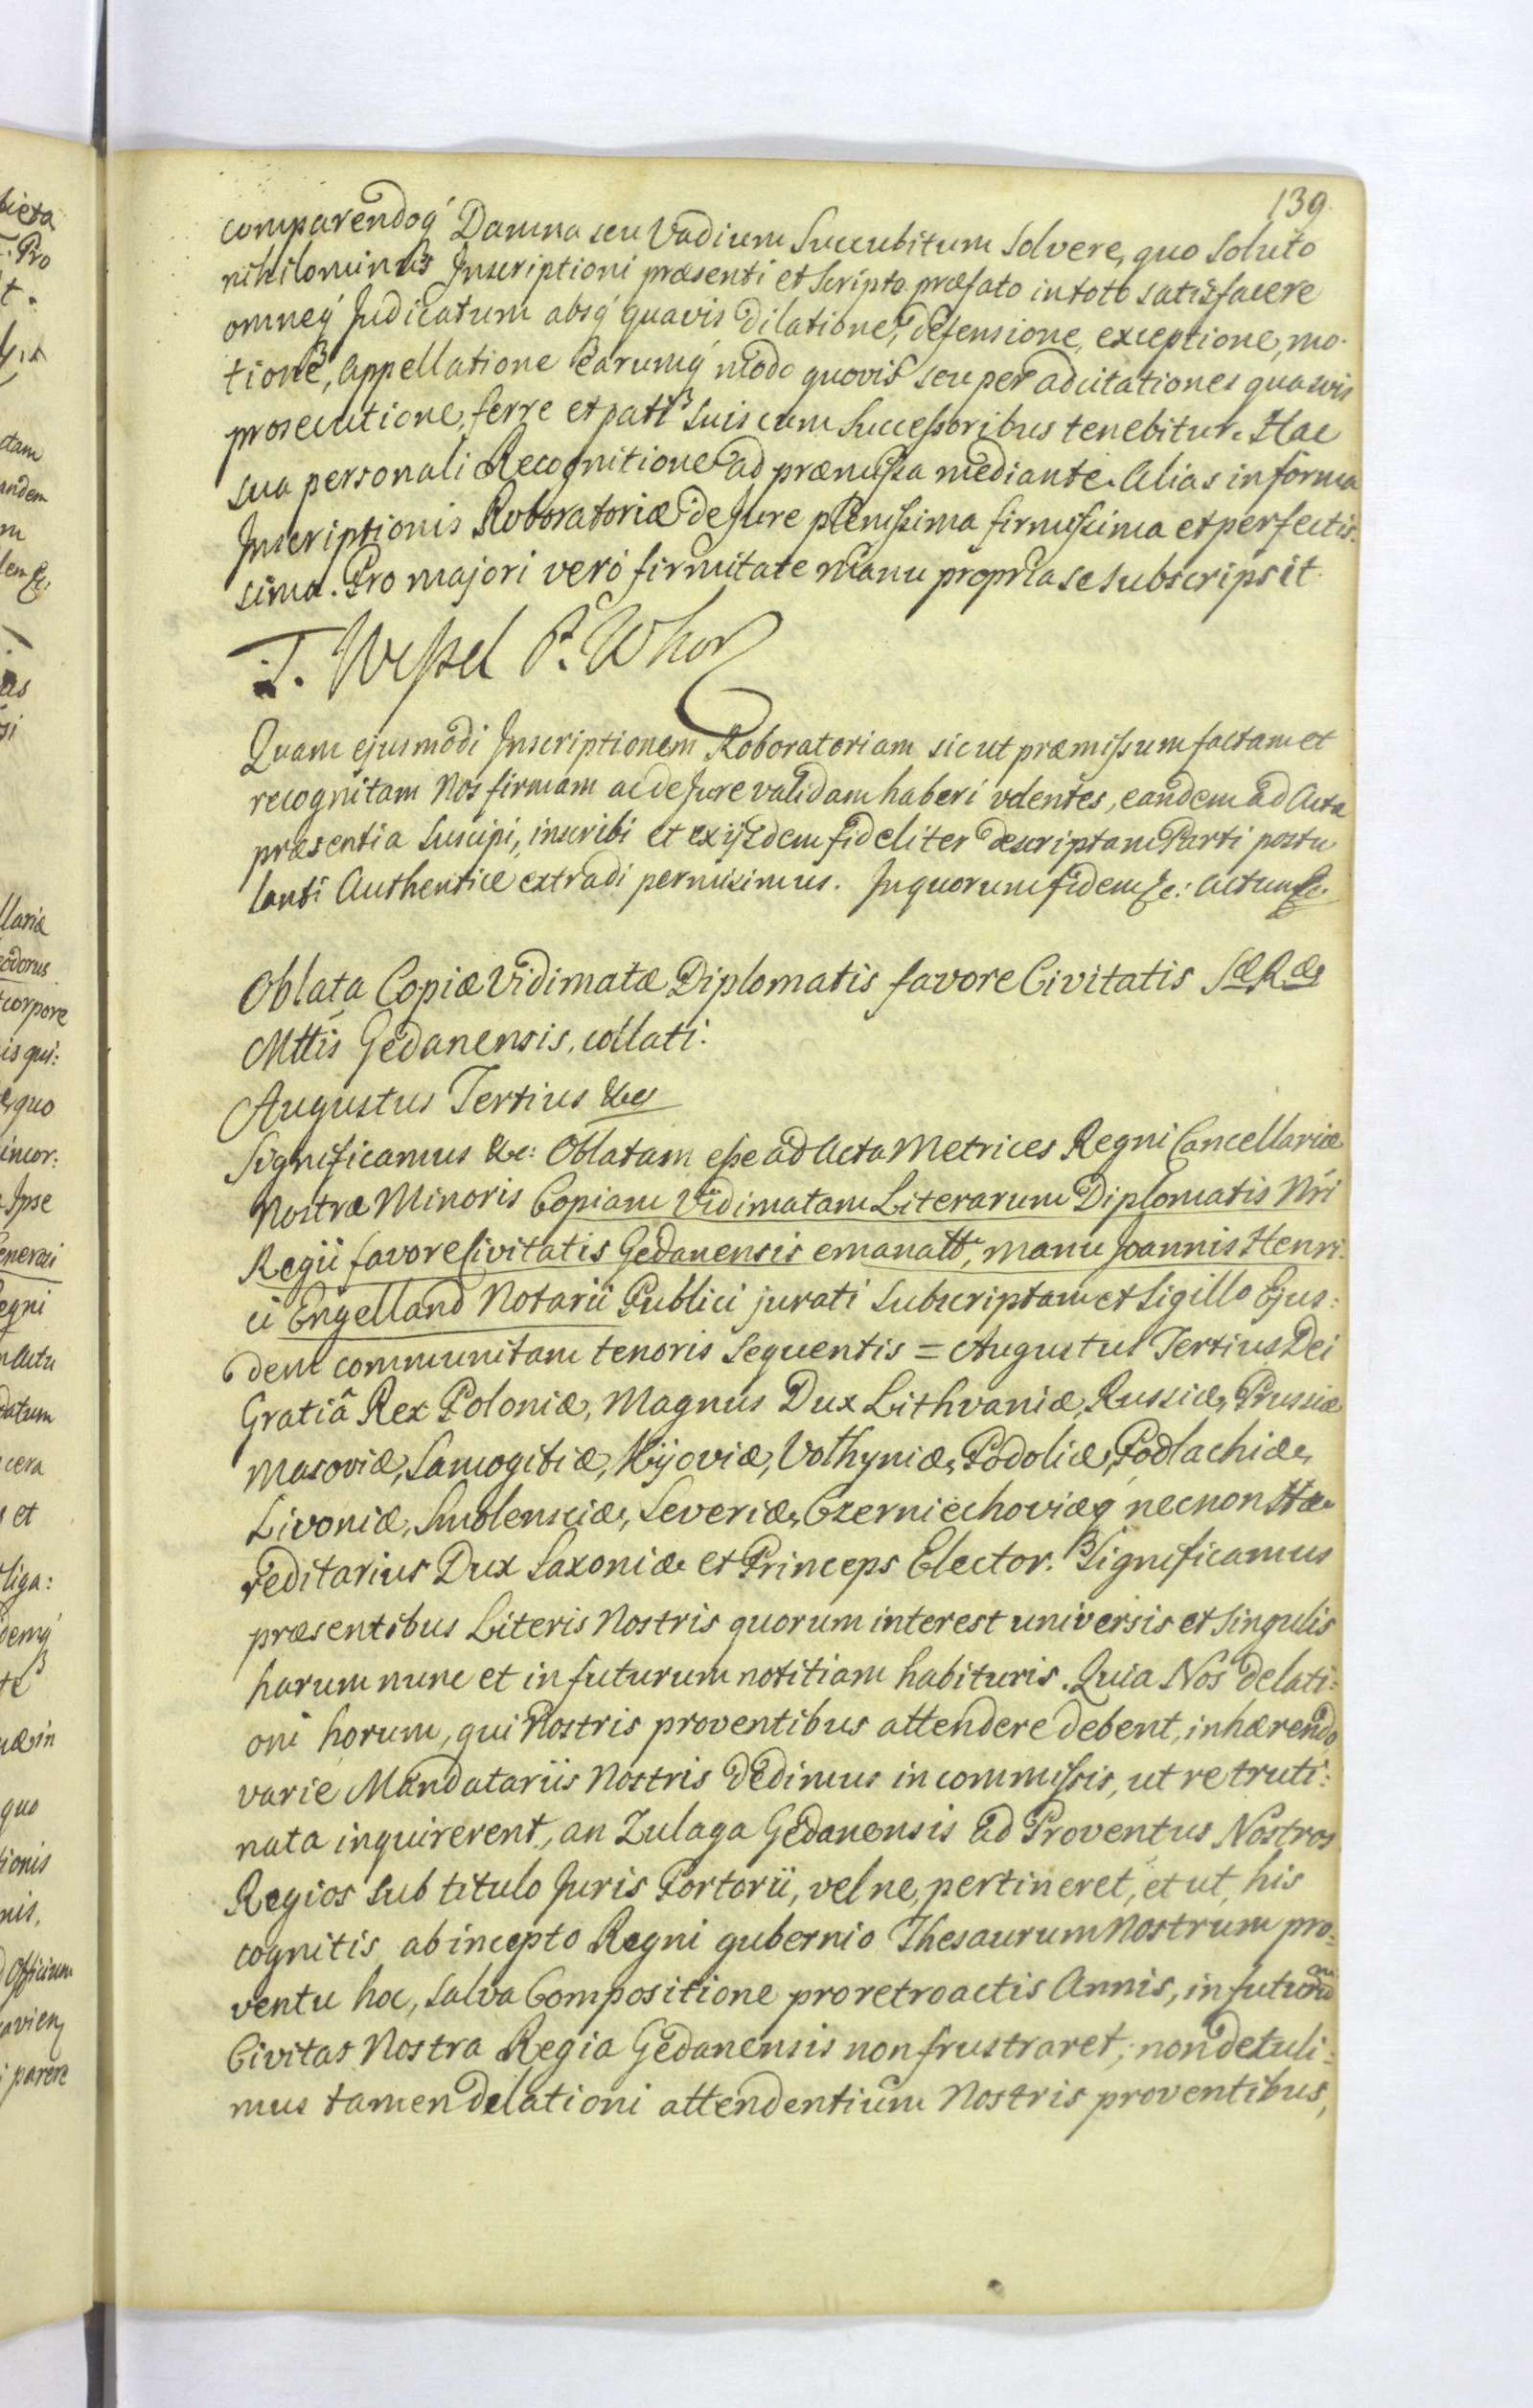 139.
comparendoq́ Damna seu Vadium Succubitum Solvere, quo soluto
nihilominus Inscriptioni præsenti et Scripto præfato in toto satisfacere
omneq́ Judicatum absq́ quavis Dilatione, defensione, exceptione, mo-
tione, appellatione earumq́ modo quovis seu per adcitationes quasvis
prosecutione, ferre et pati suis cum Successoribus tenebitur. Hac
sua personali Recognitione ad præmissa mediante. Alias in forma
Inscriptionis Roboratoriæ de Jure plenissima firmissima et perfectis-
sima. Pro majori vero firmitate manu propria se subscripsit.
T. Wessel P. W
Quam ejusmodi Inscriptionem Roboratoriam sicut præmissum factam et
recognitam Nos firmam ac de Jure validam haberi volentes, eandem ad Acta
præsentia suscipi, inscribi et ex ijsdem fideliter descriptam Parti postu
lanti Authentice extradi permisimus. In quorum fidem &c: Actum &c.
Oblata Copiæ Vidimatæ Diplomatis favore Civitatis SæRæ
Mttis Gedanensis, collati.
Augustus Tertius &c
Significamus &c: Oblatam esse ad Acta Metrices Regni Cancellariæ
Nostræ Minoris Copiam Vidimatam Literarum Diplomatis Nri
Regii favore Civitatis Gedanensis emanatt, manu Joannis Henri-
ci Engelland Notarii Publici jurati subscriptam et Sigillo Ejus:
dem communitam tenoris sequentis = Augustus Tertius Dei
Gratiâ Rex Poloniæ, Magnus Dux Lithvaniæ, Russiæ, Prussiæ
Masoviæ, Samogitiæ, Kijoviæ, Volhyniæ, Podoliæ, Podlachiæ,
Livoniæ, Smolensciæ, Severiæ, Czerniechoviæq́ necnon Hæ-
reditarius Dux Saxoniæ et Princeps Elector. Significamus
præsentibus Literis Nostris quorum interest universis et singulis
harum nunc et in futurum notitiam habituris. Quia Nos delati:
oni horum, qui Nostris proventibus attendere debent, inhærendo
varie Mandatariis Nostris dedimus in commissis, ut re truti:
nata inquirerent, an Zulaga Gedanensis ad Proventus Nostros
Regios sub titulo Juris Portorii, vel ne, pertineret, et ut, his
cognitis ab incepto Regni gubernio Thesaurum Nostrum pro:
ventu hoc, salva Compositione pro retroactis Annis, in futurum
Civitas Nostra Regia Gedanensis non frustraret; non detuli:
mus tamen delationi attendentium Nostris proventibus,